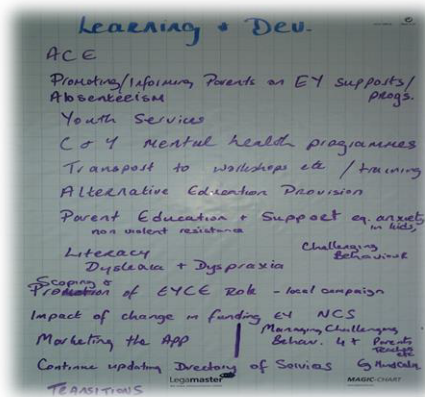 Learning + Dev.
ACE
Promoting/Informing Parents on EY Supports/
Absenteeism progs.
Youth Services
C + Y Mental health programmes
Transport to workshops etc / training
Alternative Education Provision
Parent Education + Support eg. anxiety
non violent resistance in kids,
Literacy Challenging
Dyslexia + Dyspraxia Behaviour
Scoping &
Promotion of EYCE Role - local campaign
Impact of change in funding EY NCS
Managing Challenging
Marketing the App Behav. 4+ Parents
Teachers
etc
Continue updating Directory of Services eg
TRANSITIONS
Legamaster MAGIC-CHART